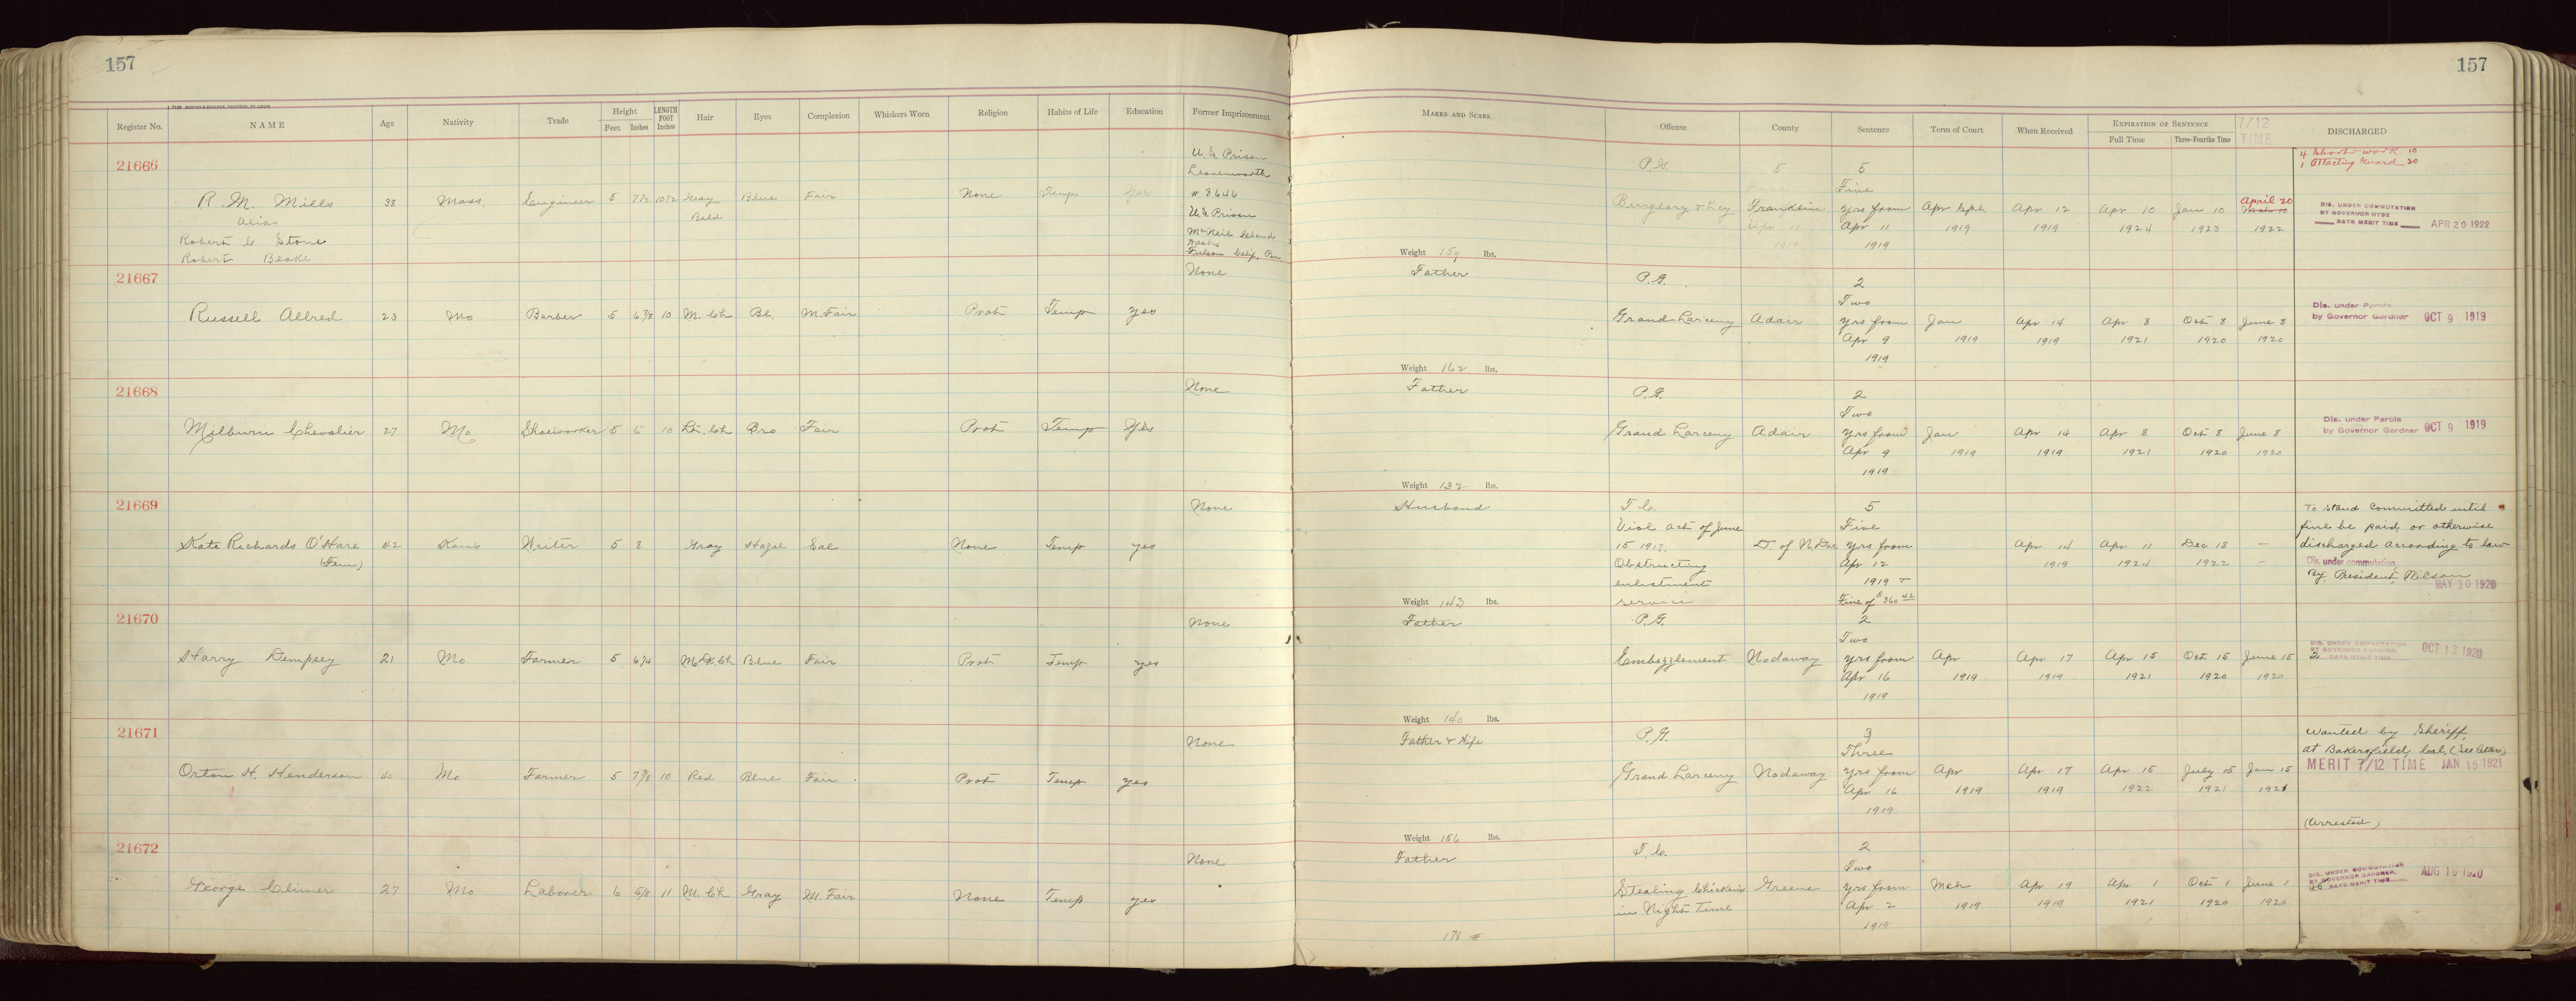 157
157
7126 BUXTON & SKINNER, PRINTERS, ST. LOUIS
Register No. NAME Age Nativity Trade Height Feet Inches LENGTH FOOT Inches Hair Eyes Complexion Whiskers Worn Religion Habits of Life Education Former Imprisonment MARKS AND SCARS Offense County Sentence Term of Court When Received EXPIRATION OF SENTENCE Full Time Three-Fourths Time 7/12 TIME DISCHARGED
21666
U.S. Prison
Leavenworth
# 8646
U.S. Prison
McNeil Island
Wash
Folsom Calif. Pen
R. M. Mills 38 Mass. Engineer 5 7½ 10½ Gray Blue Fair None Temp Yes
Bald
Alias
Robert C Stone
Robert Beake
Weight 159 lbs.
P.G. 5 5
Five
Burglary & Lcy Franklin yrs from Apr Spl. Apr 12 Apr 10 Jan 10 April 20
Apr 11 1919 1919 1924 1923 1922
1919
4 Short work 10
1 Attacting Guard 20
DIS. UNDER COMMUTATION
BY GOVERNOR HYDE
DAYS MERIT TIME APR 20 1922
21667
None Father P.G. 2
Two
Russell Allred 23 Mo Barber 5 6 7/8 10 M. Ch Bl. M. Fair Prot Temp yes
Grand Larceny Adair yrs from Jan Apr 14 Apr 8 Oct 8 June 8
Apr 9 1919 1919 1921 1920 1920
1919
Dis. under Parole
by Governor Gardner OCT 9 1919
Weight 162 lbs.
21668
None Father P.G. 2
Two
Milburn Chevalier 27 Mo Shoeworker 5 6 10 Lt. Ch Bro Fair Prot Temp Yes
Grand Larceny Adair yrs from Jan Apr 14 Apr 8 Oct 8 June 8
Apr 9 1919 1919 1921 1920 1920
1919
Dis. under Parole
by Governor Gardner OCT 9 1919
Weight 132 lbs.
21669
None Husband T.C. 5
Viol act of June Five
Kate Richards O'Hare 42 Kans Writer 5 8 Gray Hazel Sal None Temp yes
(Fem)
15 1917. D. of N. Dak yrs from Apr 14 Apr 11 Dec 18 —
Obstructing Apr 12 1919 1924 1922 —
enlistment 1919 &
service Fine of $360 42
To Stand Committed until
fine be paid, or otherwise
discharged according to law
Dis. under commutation,
By President, Wilson
MAY 30 1920
Weight 143 lbs.
21670
None Father P.G. 2
Two
Harry Dempsey 21 Mo Farmer 5 6¼ M Dk Ch Blue Fair Prot Temp yes
Embezzlement Nodaway yrs from Apr Apr 17 Apr 15 Oct 15 June 15
Apr 16 1919 1919 1921 1920 1920
1919
DIS. UNDER COMMUTATION
BY GOVERNOR GARDNER,
2 DAYS MERIT TIME OCT 13 1920
Weight 140 lbs.
21671
None Father & Wife P.G. 3
Three
Orton H. Henderson 40 Mo Farmer 5 7 7/8 10 Red Blue Fair Prot Temp yes
Grand Larceny Nodaway yrs from Apr Apr 17 Apr 15 July 15 Jan 15
Apr 16 1919 1919 1922 1921 1921
1919
Wanted by Sheriff,
at Bakersfield Cal, (See letters)
MERIT 7/12 TIME JAN 15 1921
(Arrested)
Weight 156 lbs.
21672
None Father T.C. 2
Two
George Climer 27 Mo Laborer 6 5/8 11 M. Ch Gray M. Fair None Temp yes
Stealing Chickens Greene yrs from Mch Apr 19 Apr 1 Oct 1 June 1
in Night Time Apr 2 1919 1919 1921 1920 1920
1919
DIS. UNDER COMMUTATION
BY GOVERNOR GARDNER,
DAYS MERIT TIME AUG 16 1920
178 #